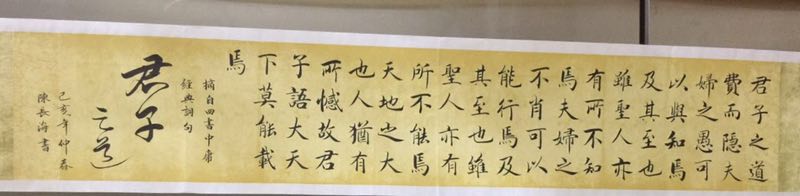 君子之道
費而隐夫
婦之愚可
以與知焉
及其至也
雖聖人亦
有所不知
焉夫婦之
不肖可以
能行焉及
其至也雖
聖人亦有
所不能焉
天地之大
也人猶有
所憾故君
子語大天
下莫能載
焉
摘自四書中庸
經典詞句
君子
之道
己亥年仲春
陳長海書